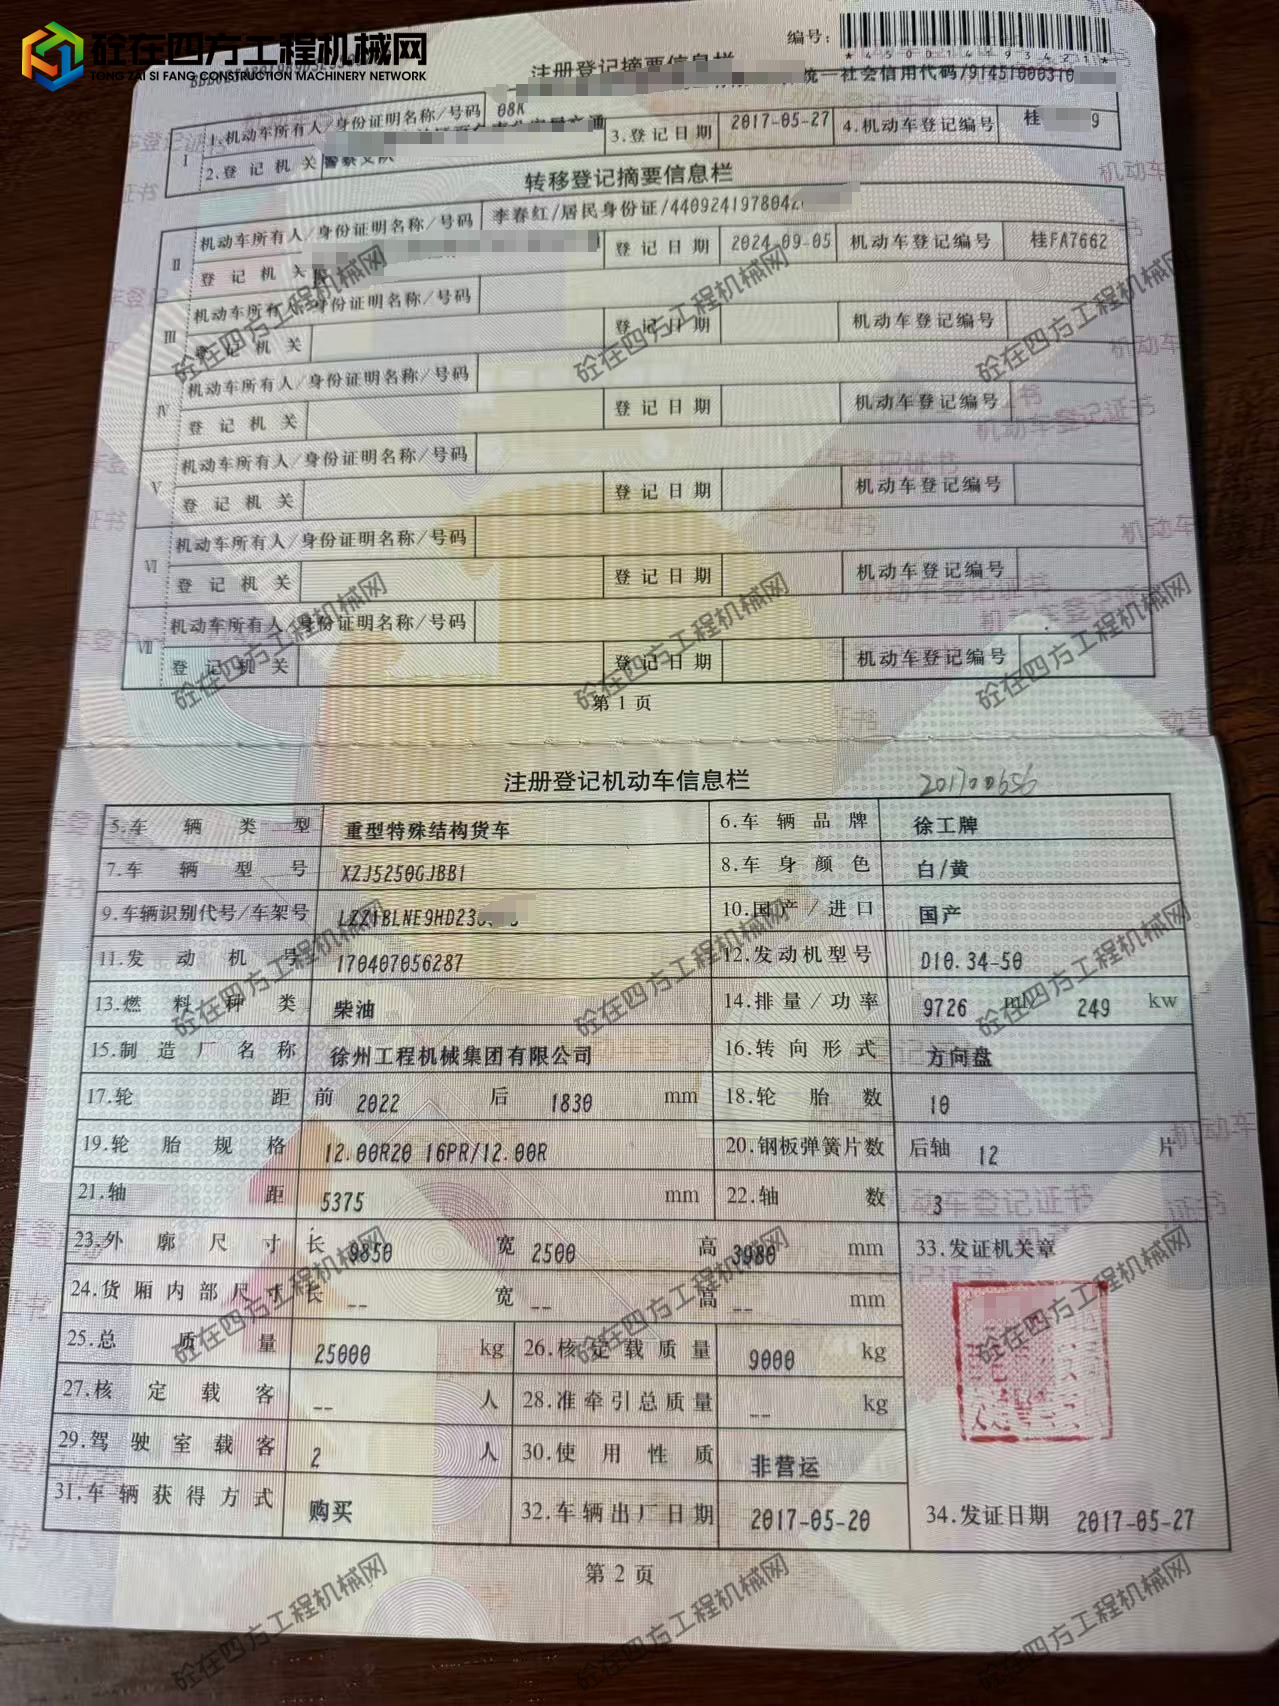 砼在四方工程机械网
TONG ZAI SI FANG CONSTRUCTION MACHINERY NETWORK
编号:
*450014193421*
注册登记摘要信息栏
统一社会信用代码/91451000310
I 1.机动车所有人/身份证明名称/号码 08K
2.登记机关 警察支队 3.登记日期 2017-05-27 4.机动车登记编号 桂 9
转移登记摘要信息栏
II 机动车所有人/身份证明名称/号码 李春红/居民身份证/4409241978042
登记机关 登记日期 2024-09-05 机动车登记编号 桂FA7662
III 机动车所有人/身份证明名称/号码
登记机关 登记日期 机动车登记编号
IV 机动车所有人/身份证明名称/号码
登记机关 登记日期 机动车登记编号
V 机动车所有人/身份证明名称/号码
登记机关 登记日期 机动车登记编号
VI 机动车所有人/身份证明名称/号码
登记机关 登记日期 机动车登记编号
VII 机动车所有人/身份证明名称/号码
登记机关 登记日期 机动车登记编号
第 1 页
注册登记机动车信息栏 201700656
5.车辆类型 重型特殊结构货车 6.车辆品牌 徐工牌
7.车辆型号 XZJ5250GJBB1 8.车身颜色 白/黄
9.车辆识别代号/车架号 LZZ1BLNE9HD23 10.国产/进口 国产
11.发动机号 170407056287 12.发动机型号 D10.34-50
13.燃料种类 柴油 14.排量/功率 9726 ml 249 kw
15.制造厂名称 徐州工程机械集团有限公司 16.转向形式 方向盘
17.轮距 前 2022 后 1830 mm 18.轮胎数 10
19.轮胎规格 12.00R20 16PR/12.00R 20.钢板弹簧片数 后轴 12 片
21.轴距 5375 mm 22.轴数 3
23.外廓尺寸 长 9850 宽 2500 高 3980 mm 33.发证机关章
24.货厢内部尺寸 长 -- 宽 -- 高 -- mm
25.总质量 25000 kg 26.核定载质量 9000 kg
27.核定载客 -- 人 28.准牵引总质量 -- kg
29.驾驶室载客 2 人 30.使用性质 非营运
31.车辆获得方式 购买 32.车辆出厂日期 2017-05-20 34.发证日期 2017-05-27
第 2 页